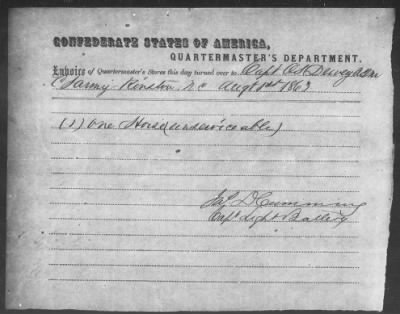 CONFEDERATE STATES OF AMERICA,
QUARTERMASTER'S DEPARTMENT.
Invoice of Quartermaster's Stores this day turned over to Capt. Dewey AQM
CS Army Kinston, N.C. Augt 1st 1862
(1) One Horse (unserviceable)
Jas D Cumming
Capt Light Battery